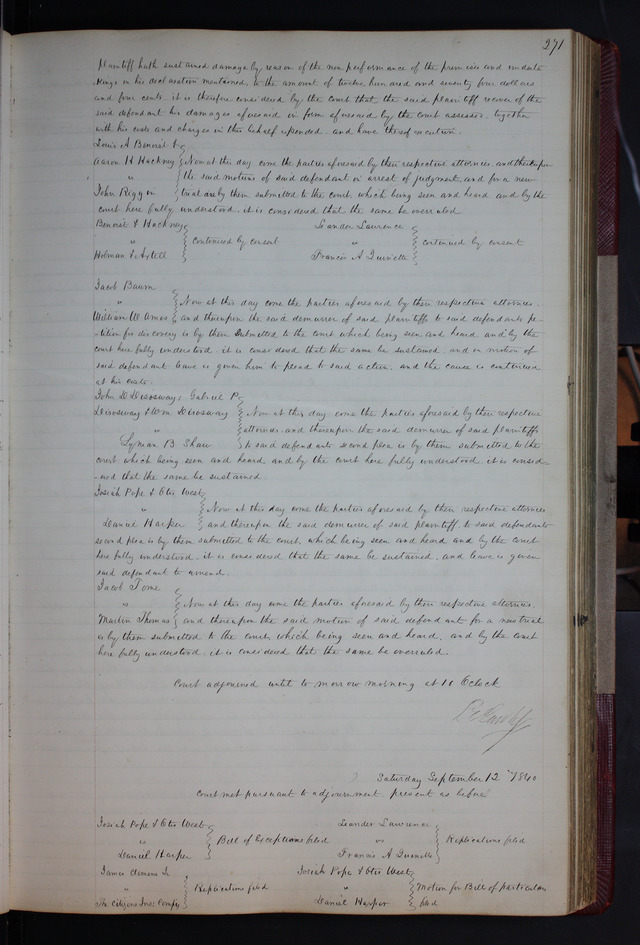 271
Plaintiff hath sustained damage by reason of the non performance of the promises and underta
kings in his declaration mentioned, to the amount of twelve hundred and seventy four dollars
and four cents. it is therefore considered by the court that the said plaintiff recover of the
said defendant his damages aforesaid in form aforesaid by the court assessor. together
with his costs and charges in this behalf expended. and have thereof execution.
Louis A Benoist &c
Aaron H Hackney Now at this day come the parties aforesaid by their respective attornies. and thereupon
" the said motions of said defendant in arrest of judgment, and for a new
John Riggin trial are by them submitted to the court which being seen and heard and by the
court here fully understood. it is considered that the same be overruled
Benoist & Hackney
" continued by consent
Holman & Aytell
Leander Lawrence
" continued by consent
Francis A Quinette
Jacob Baum
" Now at this day come the parties aforesaid by their respective attornies.
William W Ames and thereupon the said demurrer of said plaintiffs to said defendants pe-
-tition for discovery is by them submitted to the court which being seen and heard, and by the
court here fully understood. it is considered that the same be sustained. and on motion of
said defendant leave is given him to plead to said action, and the cause is continued
at his costs.
John D Disosway, Gabriel P.
Disosway & Wm Disosway Now at this day come the parties aforesaid by their respective
" attornies. and thereupon the said demurrer of said plaintiffs
Lyman B Shaw to said defendants second plea is by them submitted to the
court which being seen and heard, and by the court here fully understood. it is consid-
-ered that the same be sustained.
Josiah Pope & Otis West
" Now at this day come the parties aforesaid by their respective attornies
Daniel Harper and thereupon the said demurrer of said plaintiff. to said defendants
second plea is by them submitted to the court. which being seen and heard and by the court
here fully understood. it is considered that the same be sustained. and leave is given
said defendant to amend.
Jacob Tome
" Now at this day come the parties aforesaid by their respective attornies.
Martin Thomas and thereupon the said motion of said defendant for a new trial
is by them submitted to the court, which being seen and heard. and by the court
here fully understood. it is considered that the same be overruled.
Court adjourned until to morrow morning at 10 O'clock
Saturday September 12th 1840
Court met pursuant to adjournment. present as before
Josiah Pope & Otis West
vs Bill of Exceptions filed
Daniel Harper
Leander Lawrence
vs Replications filed
Francis A Quinette
James Clemens Jr
" Replications filed
The Citizens Ins. Compy
Josiah Pope & Otis West
" Motion for Bill of particulars
Daniel Harper filed